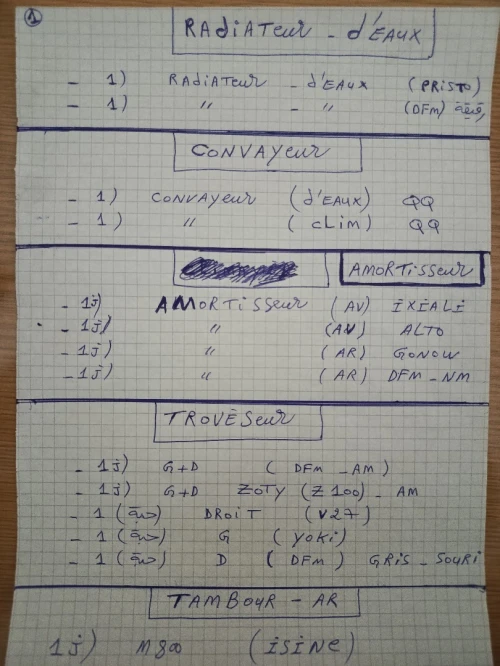 1
RADIATEUR - d'EAUX
- 1) RADIATEUR - d'EAUX (PRISTO)
- 1) " - " (DFM)
CONVAYEUR
- 1) CONVAYEUR (d'EAUX) QQ
- 1) " (CLIM) QQ
AMORTISSEUR
- 1j) AMORTISSEUR (AV) IXIALI
- 1j) " (AV) ALTO
- 1j) " (AR) GONOW
- 1j) " (AR) DFM - NM
TROVÈSEUR
- 1j) G+D (DFM - AM)
- 1j) G+D ZOTY (Z100) - AM
- 1 DROIT (V27)
- 1 G (YOKI)
- 1 D (DFM) GRIS - SOURI
TAMBOUR - AR
1j) M800 (ISINE)